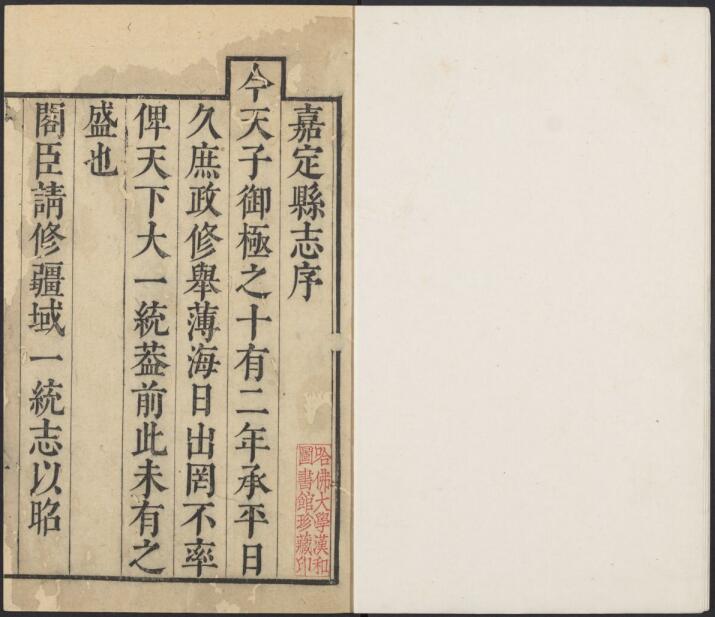 嘉定縣志序
今天子御極之十有二年承平日
久庶政修舉薄海日出罔不率
俾天下大一統葢前此未有之
盛也
閣臣請修疆域一統志以昭
哈佛大學漢和
圖書館珍藏印